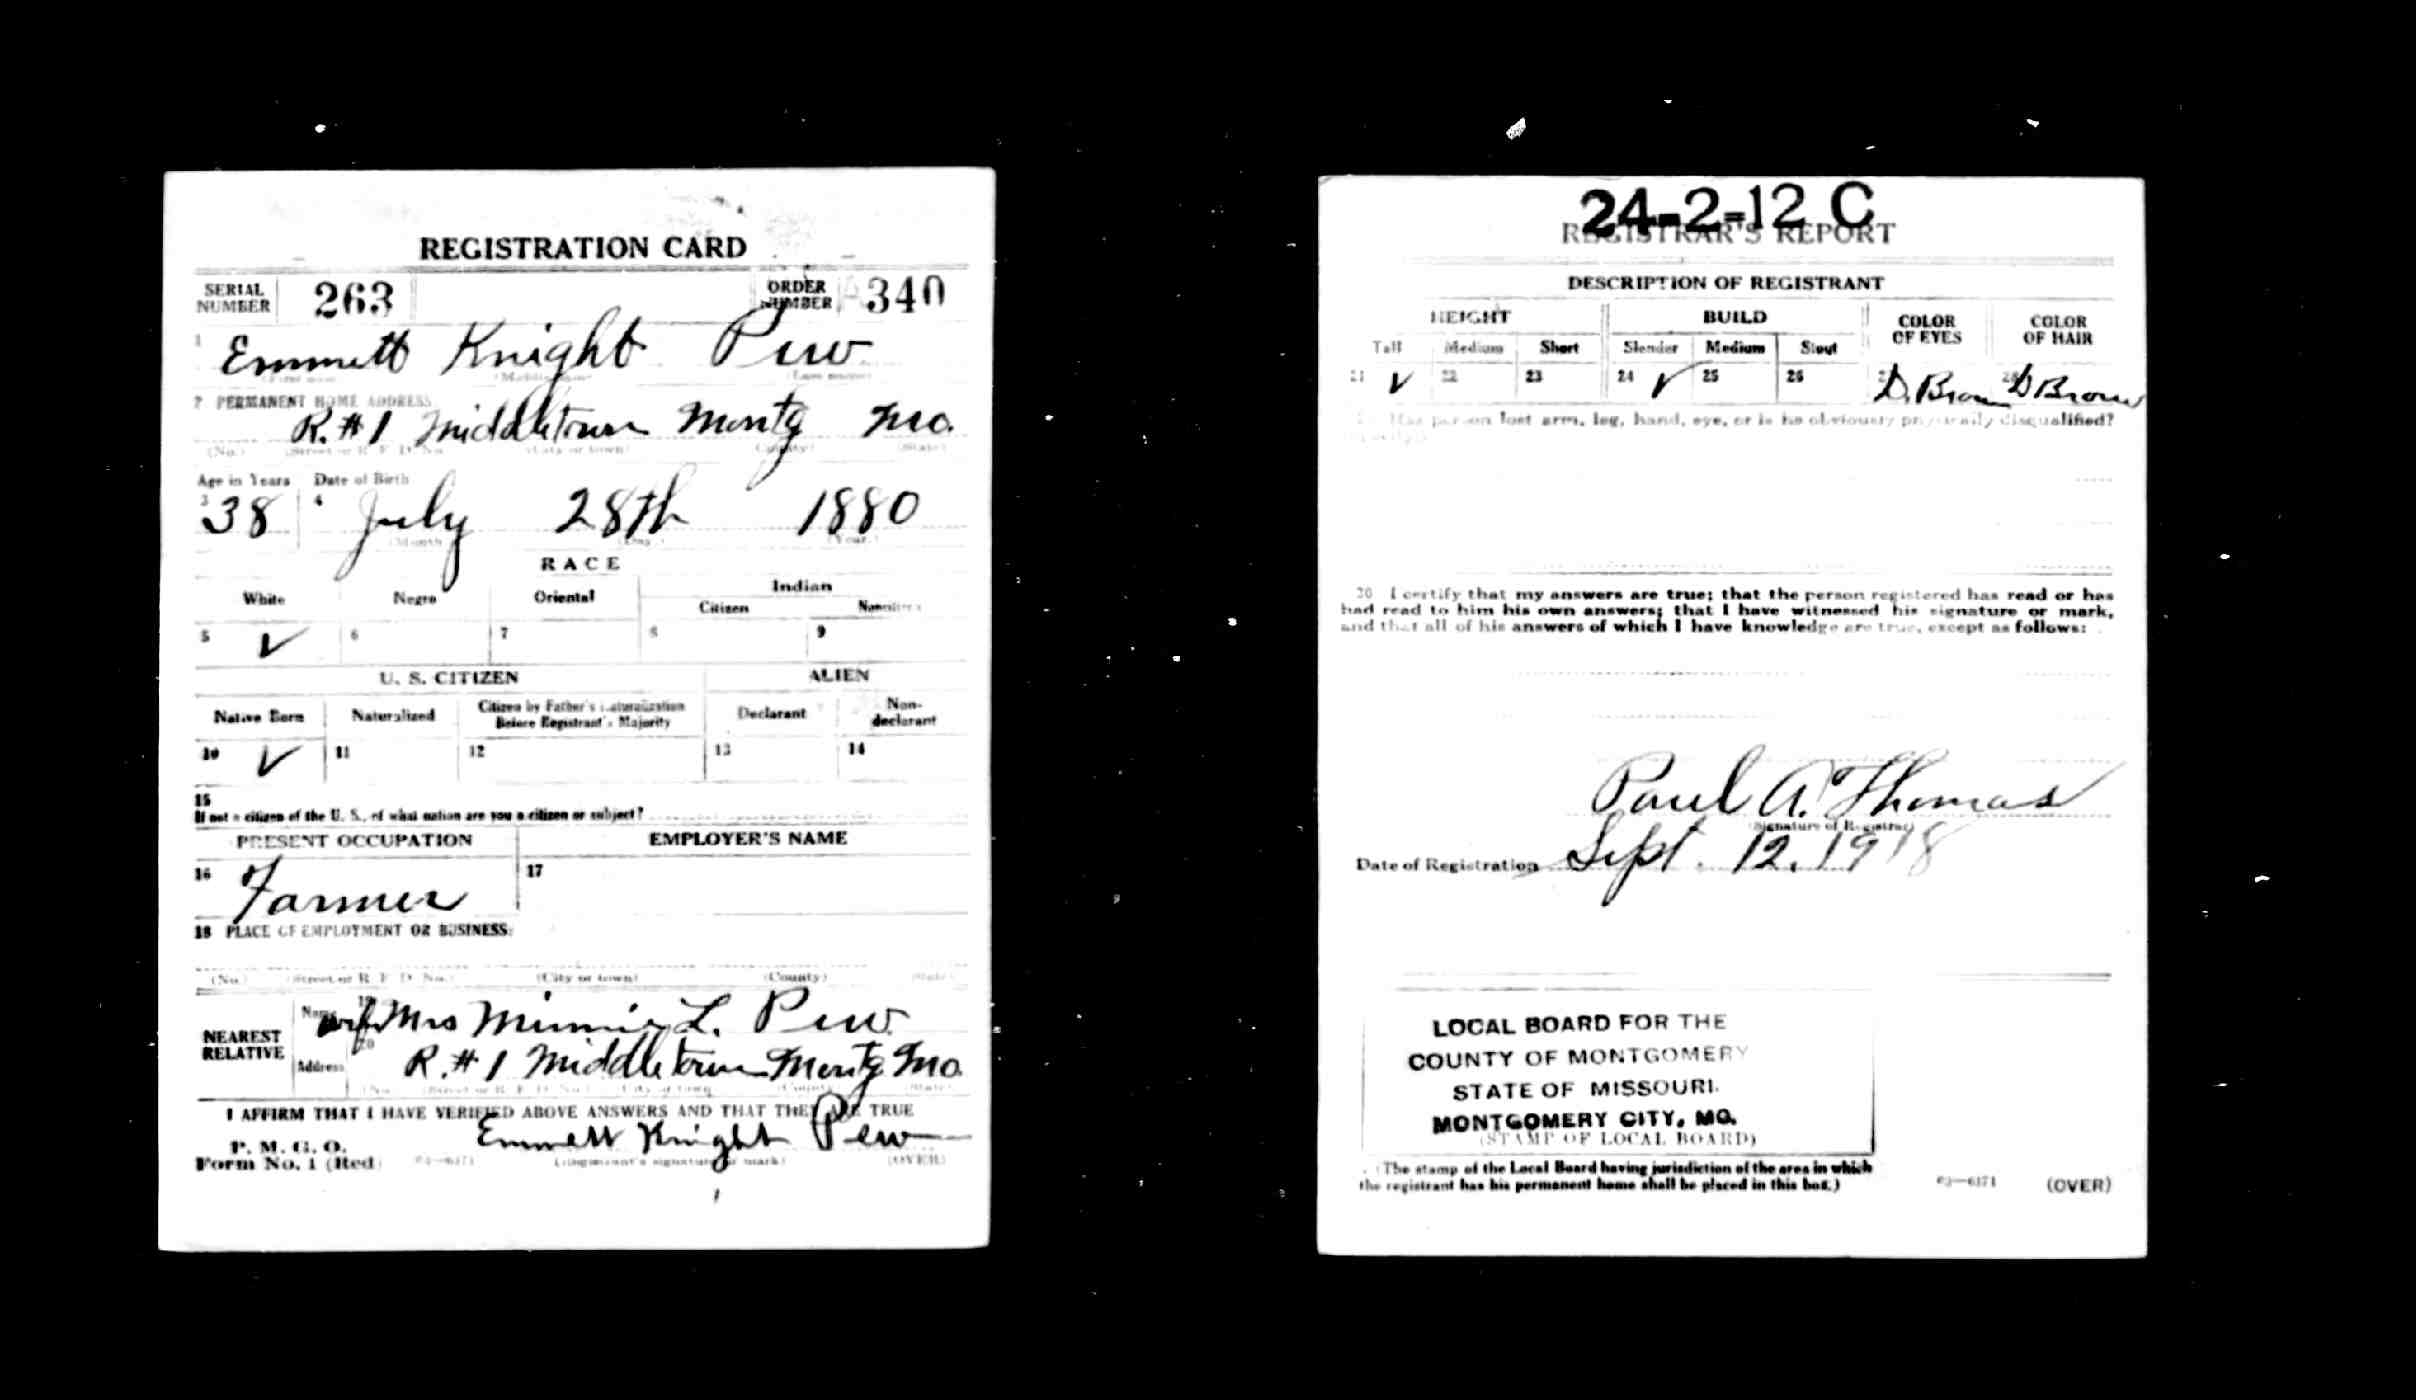 REGISTRATION CARD
SERIAL NUMBER 263 ORDER NUMBER A340
1 Emmett Knight Pew
(First name) (Middle name) (Last name)
2 PERMANENT HOME ADDRESS
R.#1 Middletown Montg Mo.
(No.) (Street or R. F. D. No.) (City or town) (County) (State)
Age in Years Date of Birth
3 38 4 July 28th 1880
(Month.) (Day.) (Year.)
RACE
White Negro Oriental Indian
Citizen Noncitizen
5 ✓ 6 7 8 9
U. S. CITIZEN ALIEN
Native Born Naturalized Citizen by Father's Naturalization Before Registrant's Majority Declarant Non-declarant
10 ✓ 11 12 13 14
15
If not a citizen of the U. S., of what nation are you a citizen or subject?
PRESENT OCCUPATION EMPLOYER'S NAME
16 Farmer 17
18 PLACE OF EMPLOYMENT OR BUSINESS:
(No.) (Street or R. F. D. No.) (City or town) (County) (State)
NEAREST RELATIVE
Name 19 wife Mrs Minnie L. Pew
Address 20 R.#1 Middletown Montg Mo.
(No.) (Street or R. F. D. No.) (City or town) (County) (State)
I AFFIRM THAT I HAVE VERIFIED ABOVE ANSWERS AND THAT THEY ARE TRUE
P. M. G. O.
Form No. 1 (Red) 03—6171 Emmett Knight Pew
(Registrant's signature or mark) (OVER)
24-2-12 C
REGISTRAR'S REPORT
DESCRIPTION OF REGISTRANT
HEIGHT BUILD COLOR OF EYES COLOR OF HAIR
Tall Medium Short Slender Medium Stout
21 ✓ 22 23 24 ✓ 25 26 27 D. Brown 28 D Brown
29 Has person lost arm, leg, hand, eye, or is he obviously physically disqualified?
(Specify.)
30 I certify that my answers are true; that the person registered has read or has
had read to him his own answers; that I have witnessed his signature or mark,
and that all of his answers of which I have knowledge are true, except as follows:
Paul A. Thomas
(Signature of Registrar)
Date of Registration Sept. 12, 1918
LOCAL BOARD FOR THE
COUNTY OF MONTGOMERY
STATE OF MISSOURI.
MONTGOMERY CITY, MO.
(STAMP OF LOCAL BOARD)
(The stamp of the Local Board having jurisdiction of the area in which
the registrant has his permanent home shall be placed in this box.)
03—6171 (OVER)